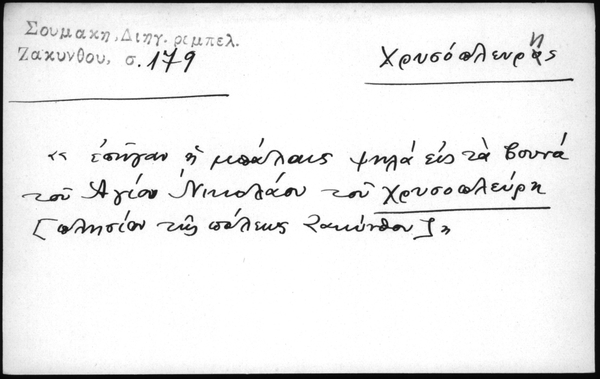 Σουμακη, Διηγ. ριμπελ.
Ζακυνθου, σ. 179
Χρυσόπλευρης
« ἐπῆγαν ἡ μπάλαις ψηλά εἰς τὰ βουνά
τοῦ Ἁγίου Νικολάου τοῦ Χρυσοπλεύρη
[πλησίον τῆς πόλεως Ζακύνθου] »